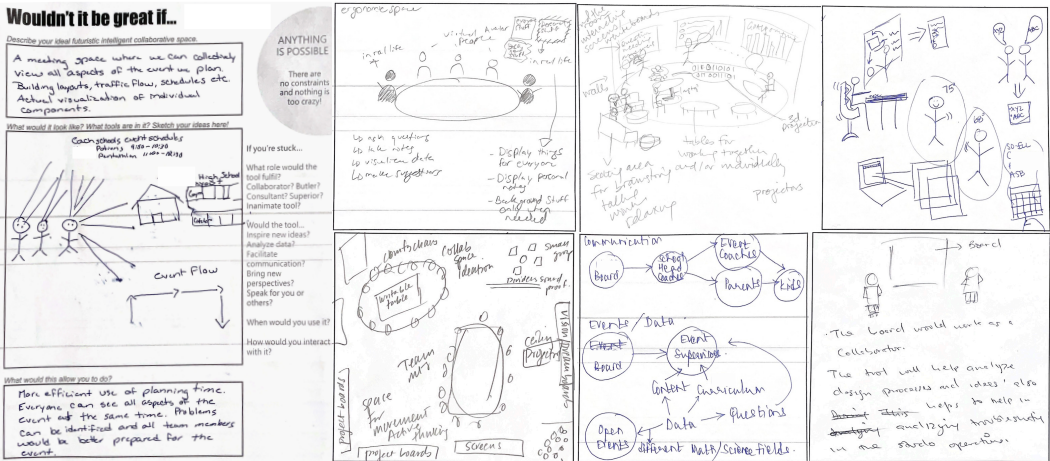 Wouldn't it be great if...
Describe your ideal futuristic intelligent collaborative space.
A meeting space where we can collectively
view all aspects of the event we plan.
Building layouts, traffic flow, schedules etc.
Actual visualization of individual
components.
ANYTHING
IS POSSIBLE
There are
no constraints
and nothing is
too crazy!
What would it look like? What tools are in it? Sketch your ideas here!
Each schools event schedules
High School
Event Flow
If you're stuck...
What role would the
tool fulfil?
Collaborator? Butler?
Consultant? Superior?
Inanimate tool?
Would the tool...
Inspire new ideas?
Analyze data?
Facilitate
communication?
Bring new
perspectives?
Speak for you or
others?
When would you use it?
How would you interact
with it?
What would this allow you to do?
More efficient use of planning time.
Everyone can see all aspects of the
event at the same time. Problems
can be identified and all team members
would be better prepared for the
event.
ergonomic space
in real life
in real life
to ask questions
to take notes
to visualize data
to make suggestions
- Display things
for everyone
- Display personal
notes
- Background stuff
only when
needed
walls
3d
projection
tables for
working together
and/or individually
Seating area
for brainstorming
talking
projectors
XYZ
ABC
XYZ
ABC
75"
66"
comfy chairs
collab
space
ideation
small
group
Dividers sound
proof
Writable
table
Team
mts
ceiling
Projector
vision/dream boards
space
for
movement
Active
thinking
project boards
project boards
screens
Communication
Board
School
Head
Coaches
Event
Coaches
Parents
Kids
Events / Data
Event
Board
Event
Supervisors
Content
Curriculum
Questions
Data
Open
Events
different Math/Science fields.
Board
The board would work as a
Collaborator.
The tool will help analyze
design processes and ideas, also
helps to help in
analyzing
in the